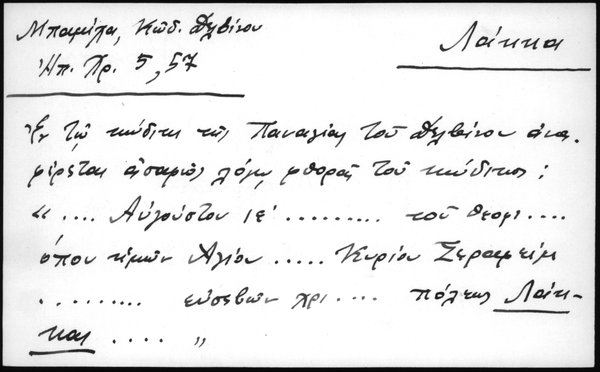 Μπαμίχα, Κώδ. Δελβίνου
Λάκκα
Ἠπ. Χρ. 5, 57
Ἐν τῷ κώδικι τῆς Παναγίας τοῦ Δελβίνου ἀνα-
φέρεται ἀσαφῶς λόγῳ φθορᾶς τοῦ κώδικος:
« .... Αὐγούστου ιε' ......... τοῦ θεοφι....
όπου τιμών Αγίου ..... Κυρίου Σεραφείμ
.......... εὐσεβών χρι .... πόλεως Λάκ-
κας .... »